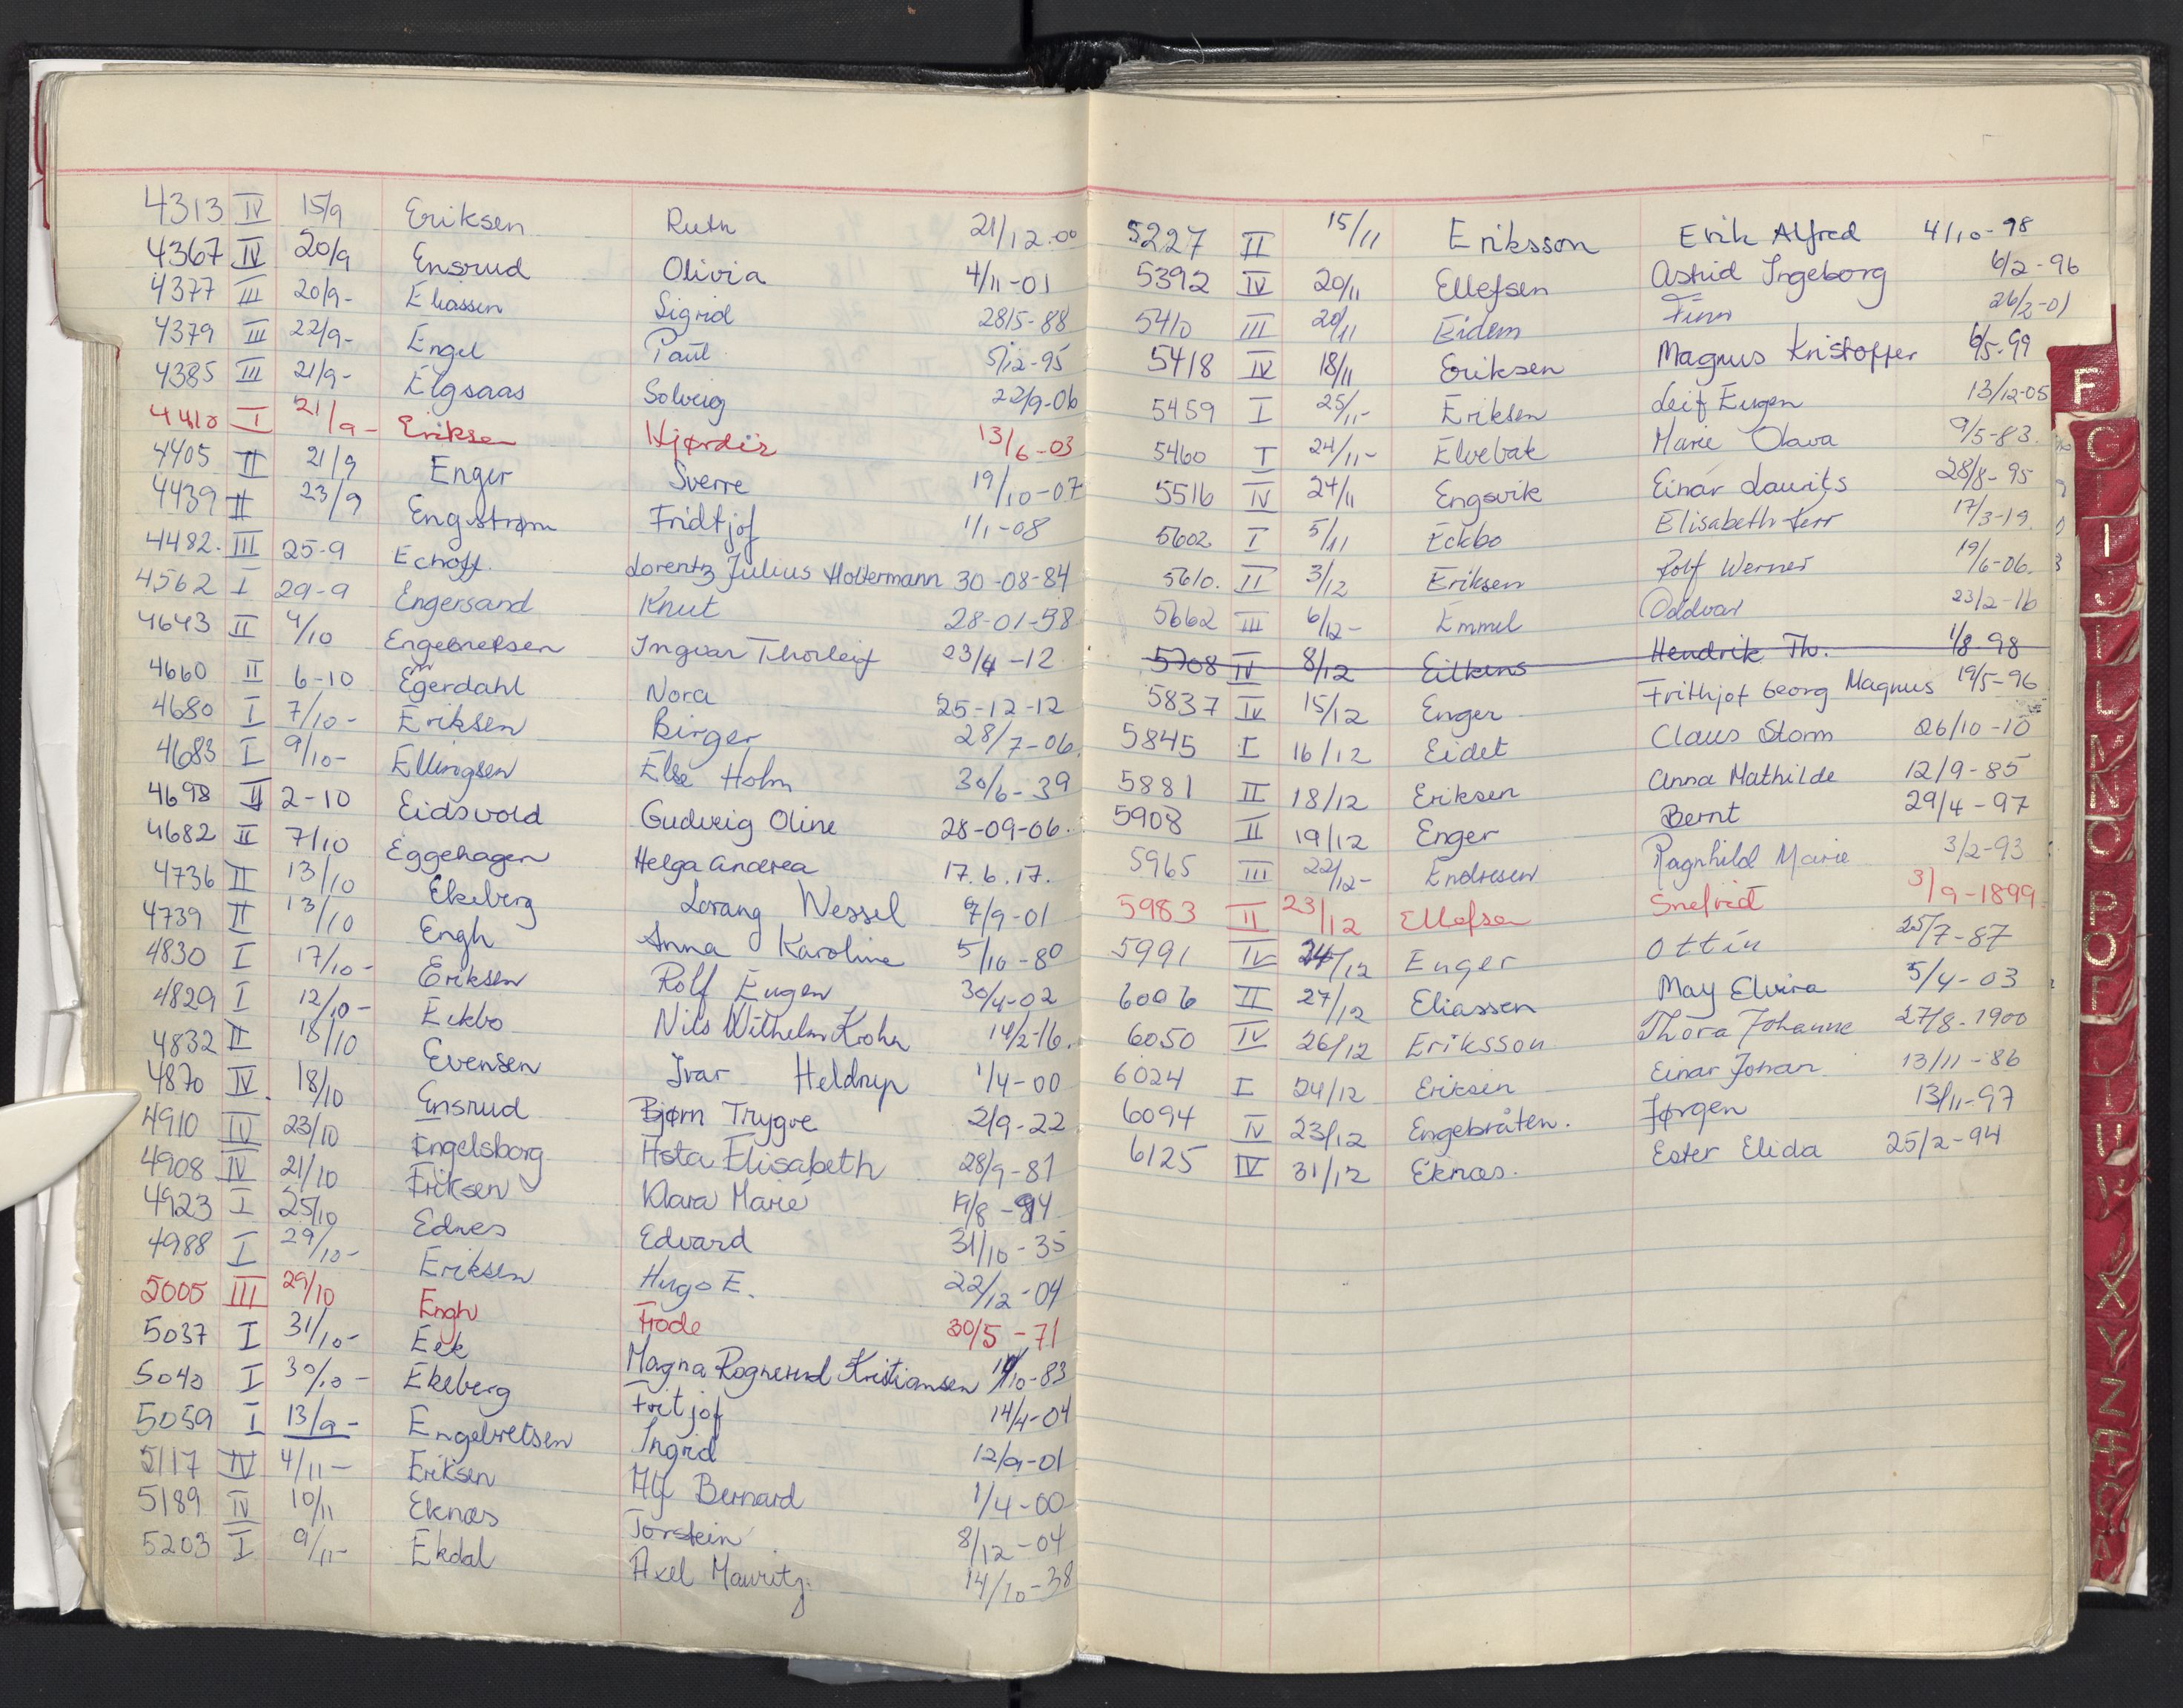 4313 IV 15/9 Eriksen Ruth 21/12.00
4367 IV 20/9 Ensrud Olivia 4/11-01
4377 III 20/9- Eliassen Sigrid 28/5-88
4379 III 22/9- Engel Paul 5/12-95
4385 III 21/9- Elgsaas Solveig 22/9-06
4410 I 21/9- Eriksen Hjørdis 13/6-03
4405 II 21/9 Enger Sverre 19/10-07
4439 II 23/9 Engstrøm Fridtjof 1/1-08
4482. III 25-9 Echoff. Lorentz Julius Holtermann 30-08-84
4562 I 29-9 Engersand Knut 28-01-98
4643 II 4/10 Engebretsen Ingvar Thorleif 23/4-12
4660 II 6-10 Egerdahl Nora 25-12-12
4680 I 7/10- Eriksen Birger 28/7-06
4683 I 9/10- Ellingsen Else Holm 30/6-39
4698 II 2-10 Eidsvold Gudveig Oline 28-09-06.
4682 II 7/10 Eggehagen Helga Andrea 17.6.17.
4736 II 13/10 Ekeberg Lorang Wessel 9/9-01
4739 II 13/10 Engh Anna Karoline 5/10-80
4830 I 17/10- Eriksen Rolf Eugen 30/4-02
4829 I 12/10- Eckbo Nils Wilhelm Krohn 14/2-16.
4832 II 18/10 Evensen Ivar 1/4-00
4870 IV. 18/10 Ensrud Bjørn Trygve 2/9-22
4910 IV 23/10 Engelsborg Asta Elisabeth 28/9-81
4908 IV 21/10 Eriksen Klara Marie 19/8-94
4923 I 25/10 Ednes Edvard 31/10-35
4988 I 29/10- Eriksen Hugo E. 22/12-04
5005 III 29/10 Engh Frode 30/5-71
5037 I 31/10- Eek Magna Rognerud Kristiansen /10-83
5040 I 30/10- Ekeberg Fritjof 14/4-04
5059 I 13/9- Engebretsen Ingrid 12/9-01
5117 IV 4/11- Eriksen Alf Bernard 1/4-00
5189 IV 10/11 Eknæs Torstein 8/12-04
5203 I 9/11- Ekdal Axel Mauritz. 14/10-38
5227 II 15/11 Eriksson Erik Alfred 4/10-98
5392 IV 20/11 Ellefsen Astrid Ingeborg 6/2-96
5410 III 20/11 Eidem Finn 26/2-01
5418 IV 18/11 Eriksen Magnus Kristoffer 6/5-99
5459 I 25/11- Eriksen Leif Eugen 13/12-05
5460 I 24/11- Elvebak Marie Olava 9/5-83
5516 IV 24/11 Engsvik Einar Laurits 28/8-95
5602 I 5/11 Eckbo Elisabeth Kerr 17/3-19
5610. II 3/12 Eriksen Rolf Werner 19/6-06.
5662 III 6/12- Emmel Oddvar 23/2-16
5708 IV 8/12 Eilkens Hendrik Th. 1/8-98
5837 IV 15/12 Enger Frithjof Georg Magnus 19/5-96
5845 I 16/12 Eidet Claus Storm 26/10-10
5881 II 18/12 Eriksen Anna Mathilde 12/9-85
5908 II 19/12 Enger Bernt 29/4-97
5965 III 22/12- Endresen Ragnhild Marie 3/2-93
5983 II 23/12 Ellefsen Snefrid 3/9-1899
5991 IV 24/12 Enger 25/7-87
6006 II 27/12 Eliassen May Elvira 5/4-03
6050 IV 26/12 Eriksson Thora Johanne 27/8-1900
6024 I 24/12 Eriksen Einar Johan 13/11-86
6094 IV 23/12 Engebråten. Jørgen 13/11-97
6125 IV 31/12 Eknæs. Ester Elida 25/2-94
F
G
I
J
L
N
O
P
X
Y
Z